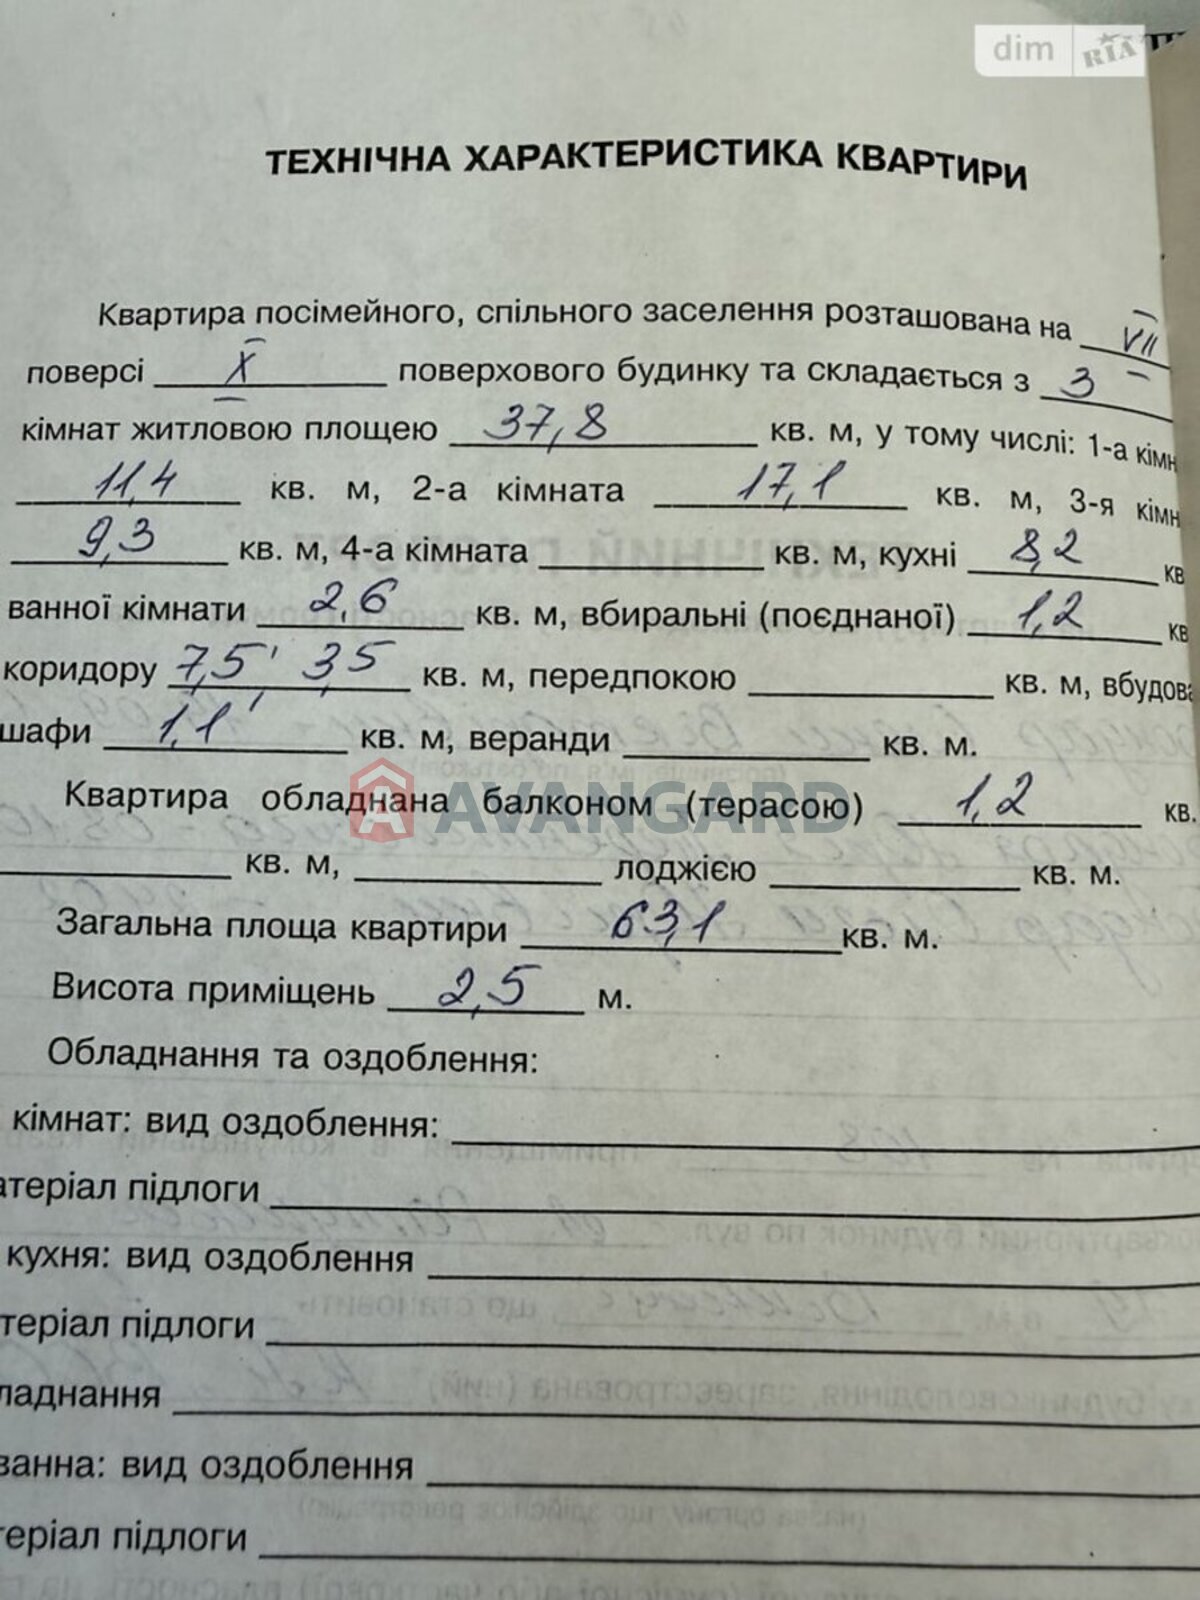 dim RIA
ТЕХНІЧНА ХАРАКТЕРИСТИКА КВАРТИРИ
Квартира посімейного, спільного заселення розташована на VII
поверсі X поверхового будинку та складається з 3
кімнат житловою площею 37,8 кв. м, у тому числі: 1-а кімн
11,4 кв. м, 2-а кімната 17,1 кв. м, 3-я кімн
9,3 кв. м, 4-а кімната кв. м, кухні 8,2 кв
ванної кімнати 2,6 кв. м, вбиральні (поєднаної) 1,2 кв
коридору 7,5, 3,5 кв. м, передпокою кв. м, вбудова
шафи 1,1 кв. м, веранди кв. м.
Квартира обладнана балконом (терасою) 1,2 кв.
AVANGARD
кв. м, лоджією кв. м.
Загальна площа квартири 63,1 кв. м.
Висота приміщень 2,5 м.
Обладнання та оздоблення:
кімнат: вид оздоблення:
атеріал підлоги
кухня: вид оздоблення
теріал підлоги
ладнання
ванна: вид оздоблення
теріал підлоги